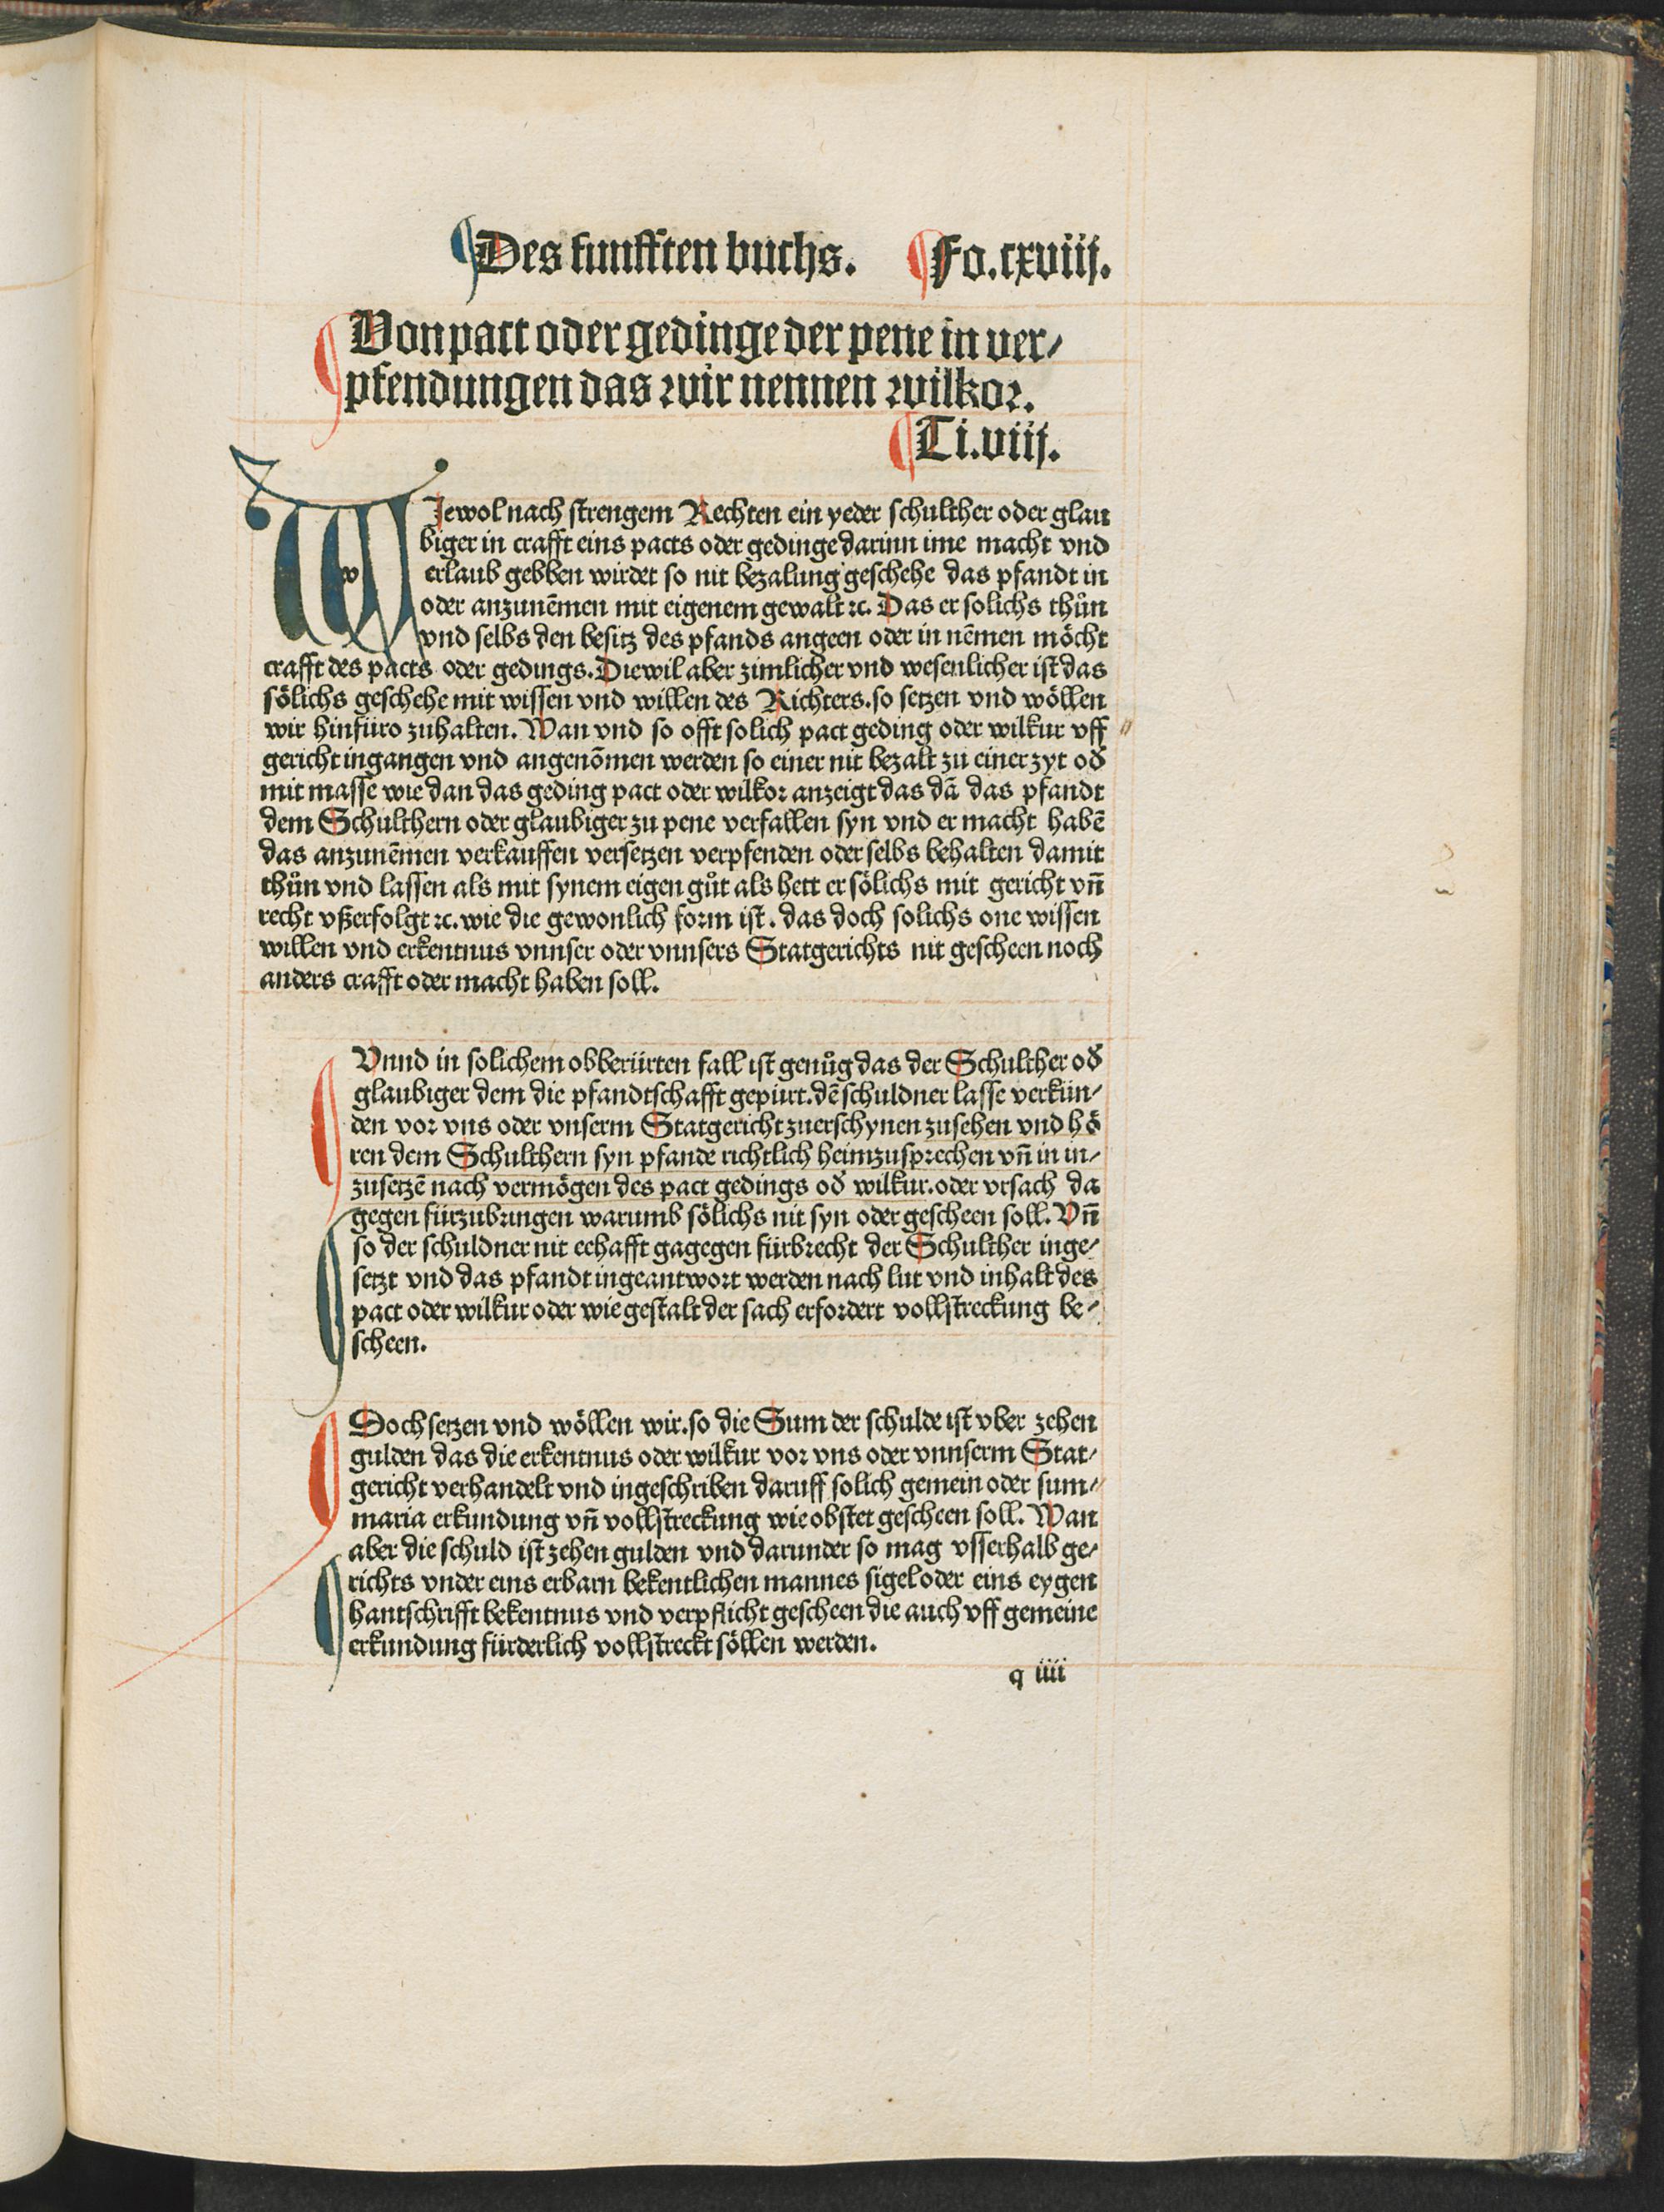 Des funfften buchs. Fo.cxviij.
Von pact oder gedinge der pene in ver⸗
pfendungen das wir nennen wilkor.
Ti.viij.
WJewol nach strengem Rechten ein yeder schulther oder glau
biger in crafft eins pacts oder gedinge darinn ime macht vnd
erlaub gebben wirdet so nit bezalung geschehe das pfandt in
oder anzunēmen mit eigenem gewalt ⁊c. Das er solichs thůn
vnd selbs den besitz des pfands angeen oder in nēmen möcht
crafft des pacts oder gedings. Diewil aber zimlicher vnd wesenlicher ist das
sölichs geschehe mit wissen vnd willen des Richters. so setzen vnd wöllen
wir hinfüro zuhalten. Wan vnd so offt solich pact geding oder wilkur vff
gericht ingangen vnd angenōmen werden so einer nit bezalt zu einer zyt od̛
mit masse wie dan das geding pact oder wilkor anzeigt das dā das pfandt
dem Schulthern oder glaubiger zu pene verfallen syn vnd er macht habē
das anzunēmen verkauffen versetzen verpfenden oder selbs behalten damit
thůn vnd lassen als mit synem eigen gůt als hett er sölichs mit gericht vn̄
recht vßerfolgt ⁊c. wie die gewonlich form ist. das doch solichs one wissen
willen vnd erkentnus vnnser oder vnnsers Statgerichts nit gescheen noch
anders crafft oder macht haben soll.
Vnnd in solichem obberürten fall ist genůg das der Schulther od̛
glaubiger dem die pfandtschafft gepürt. dē schuldner lasse verkün⸗
den vor vns oder vnserm Statgericht zuerschynen zusehen vnd hö
ren dem Schulthern syn pfande richtlich heimzusprechen vn̄ in in⸗
zusetzē nach vermögen des pact gedings od̛ wilkur. oder vrsach da
gegen fürzubringen warumb sölichs nit syn oder gescheen soll. Vn̄
so der schuldner nit eehafft gagegen fürbrecht der Schulther inge⸗
setzt vnd das pfandt ingeantwort werden nach lut vnd inhalt des
pact oder wilkur oder wie gestalt der sach erfordert vollstreckung be⸗
scheen.
Doch setzen vnd wöllen wir. so die Sum der schulde ist vber zehen
gulden das die erkentnus oder wilkur vor vns oder vnnserm Stat⸗
gericht verhandelt vnd ingeschriben daruff solich gemein oder sum⸗
maria erkundung vn̄ vollstreckung wie obstet gescheen soll. Wan
aber die schuld ist zehen gulden vnd darunder so mag vsserhalb ge⸗
richts vnder eins erbarn bekentlichen mannes sigel oder eins eygen
hantschrifft bekentnus vnd verpflicht gescheen die auch vff gemeine
erkundung fürderlich vollstreckt söllen werden.
q iiii